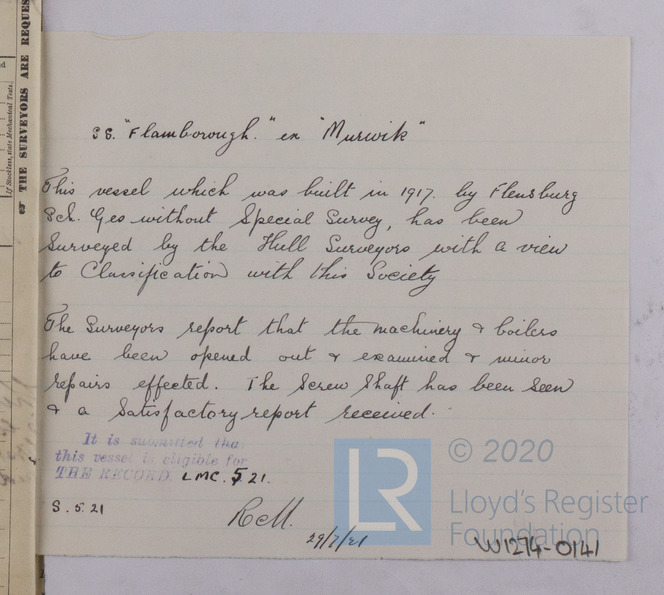 or THE SURVEYORS ARE REQUES
If Stockless, state Mechanical Tests.
SS. "Flamborough." ex "Murwik"
This vessel which was built in 1917. by Flensburg
Sch. Ges without Special Survey, has been
Surveyed by the Hull Surveyors with a view
to Classification with this Society
The Surveyors report that the machinery & boilers
have been opened out & examined & minor
repairs effected. The Screw Shaft has been seen
& a Satisfactory report received.
It is submitted that
this vessel is eligible for
THE RECORD. LMC. 5 21.
S. 5. 21
RCM.
29/7/21
© 2020
LR
Lloyd's Register
Foundation
W1274-0141